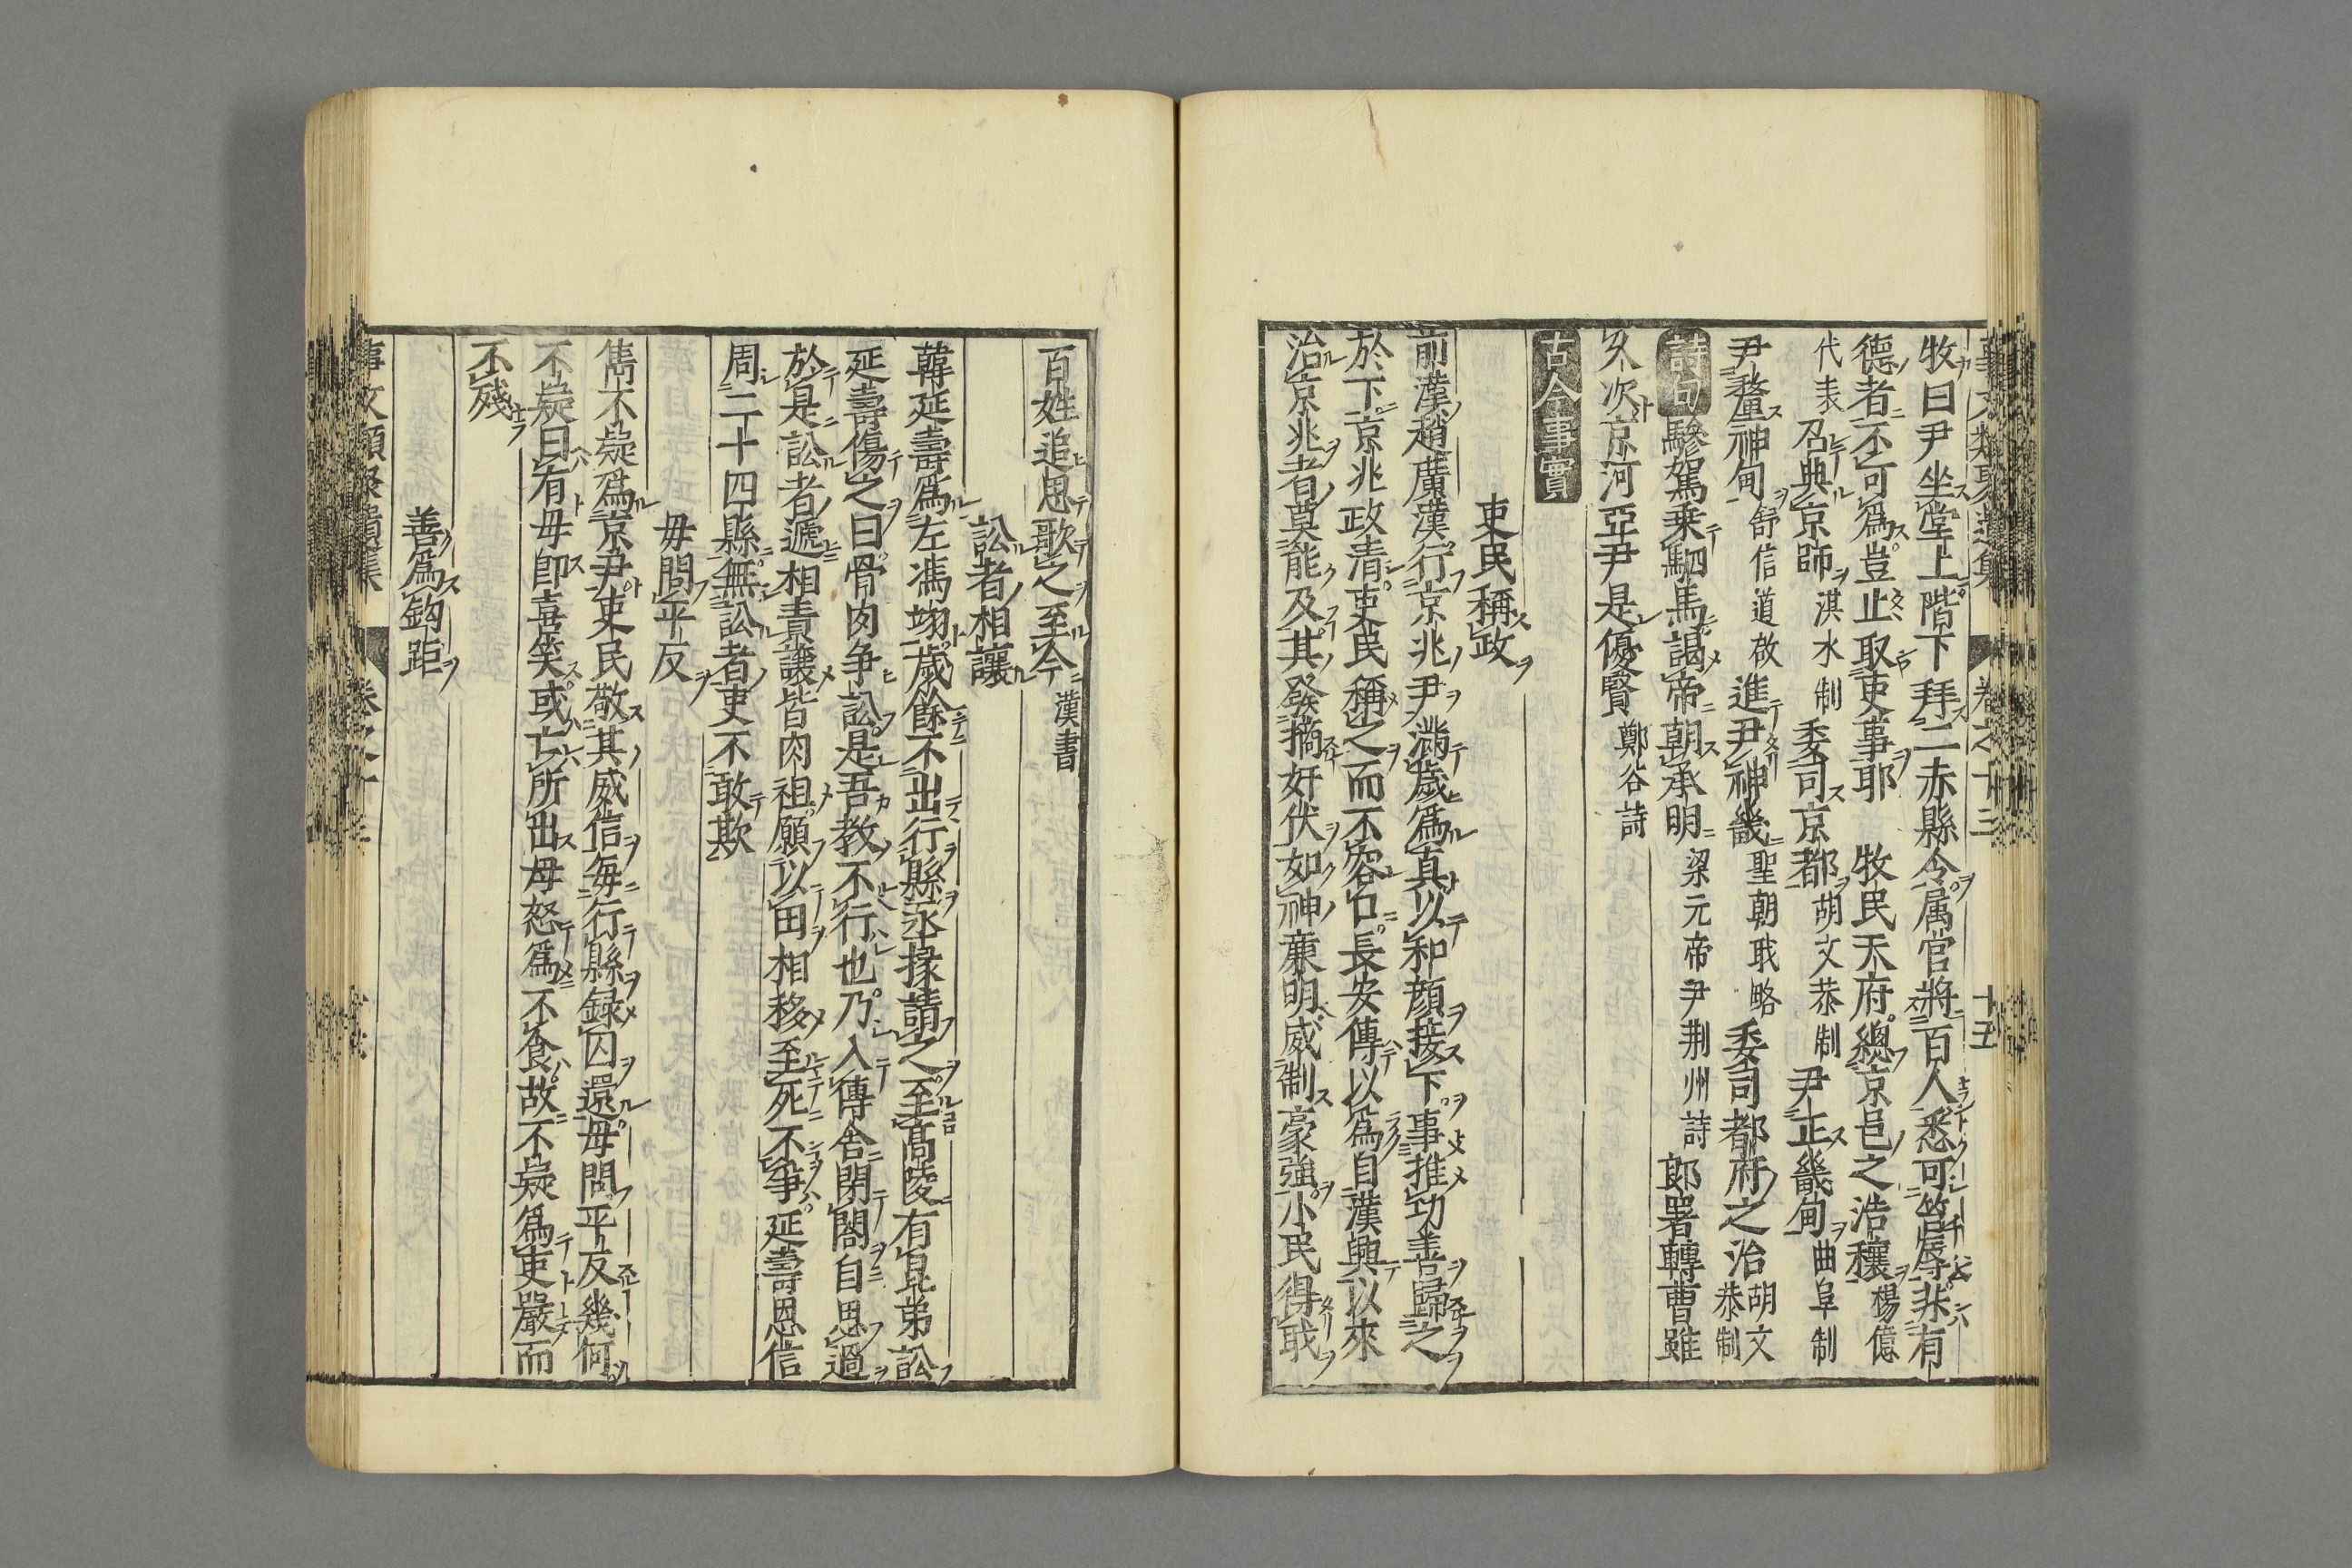 牧曰尹坐堂上階下拜二赤縣令属官將百人悉可笞辱非有
德者不可爲豈止取吏事耶　牧民天府總京邑之浩穰楊億
代表　召典京師淇水制　委司京都胡文恭制　尹正畿甸曲阜制
尹釐神甸舒信道啟　進尹神畿聖朝職略　委司都府之治胡文恭制
詩句　驂駕乗駟馬謁帝朝承明梁元帝尹荆州詩　郎署轉曹雖
久次京河亞尹是優賢鄭谷詩
古今事實
吏民稱政
前漢趙廣漢行京兆尹滿歲爲真以和顔接下事推功善歸之
於下京兆政清吏民稱之而不容口長安傳以爲自漢興以來
治京兆者莫能及其發擿奸伏如神廉明威制豪強小民得職
百姓追思歌之至今漢書
訟者相讓
韓延壽爲左馮翊歲餘不出行縣丞掾請之至髙陵有昆弟訟
延壽傷之曰骨肉争訟是吾教不行也乃入傳舎閉閤自思過
於是訟者遞相責讓皆肉袒願以田相移至死不爭延壽恩信
周二十四縣無訟者吏不敢欺
毋問平反
雋不疑爲京尹吏民敬其威信毎行縣録囚還毋問平反幾何
不疑曰有毋即喜笑或亡所出母怒爲不食故不疑爲吏嚴而
不殘
善爲鈎距